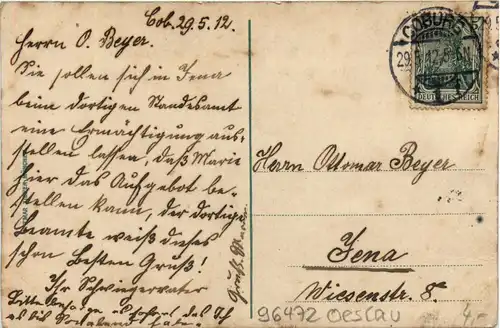 Cob. 29.5.12.
Herrn O. Beyer.
Sie sollen sich in Jena
beim dortigen Standesamt
eine Ermächtigung aus-
stellen lassen, daß Marie
hier das Aufgebot be-
stellen kann, der dortige
Beamte weiß dieses
schon Besten Gruß!
Ihr Schwiegervater
Bitte
COBURG 1
29.
DEUTSCHES REICH
Herrn Ottomar Beyer
Jena
Wiesenstr. 8.
96472 Oeslau
4,-